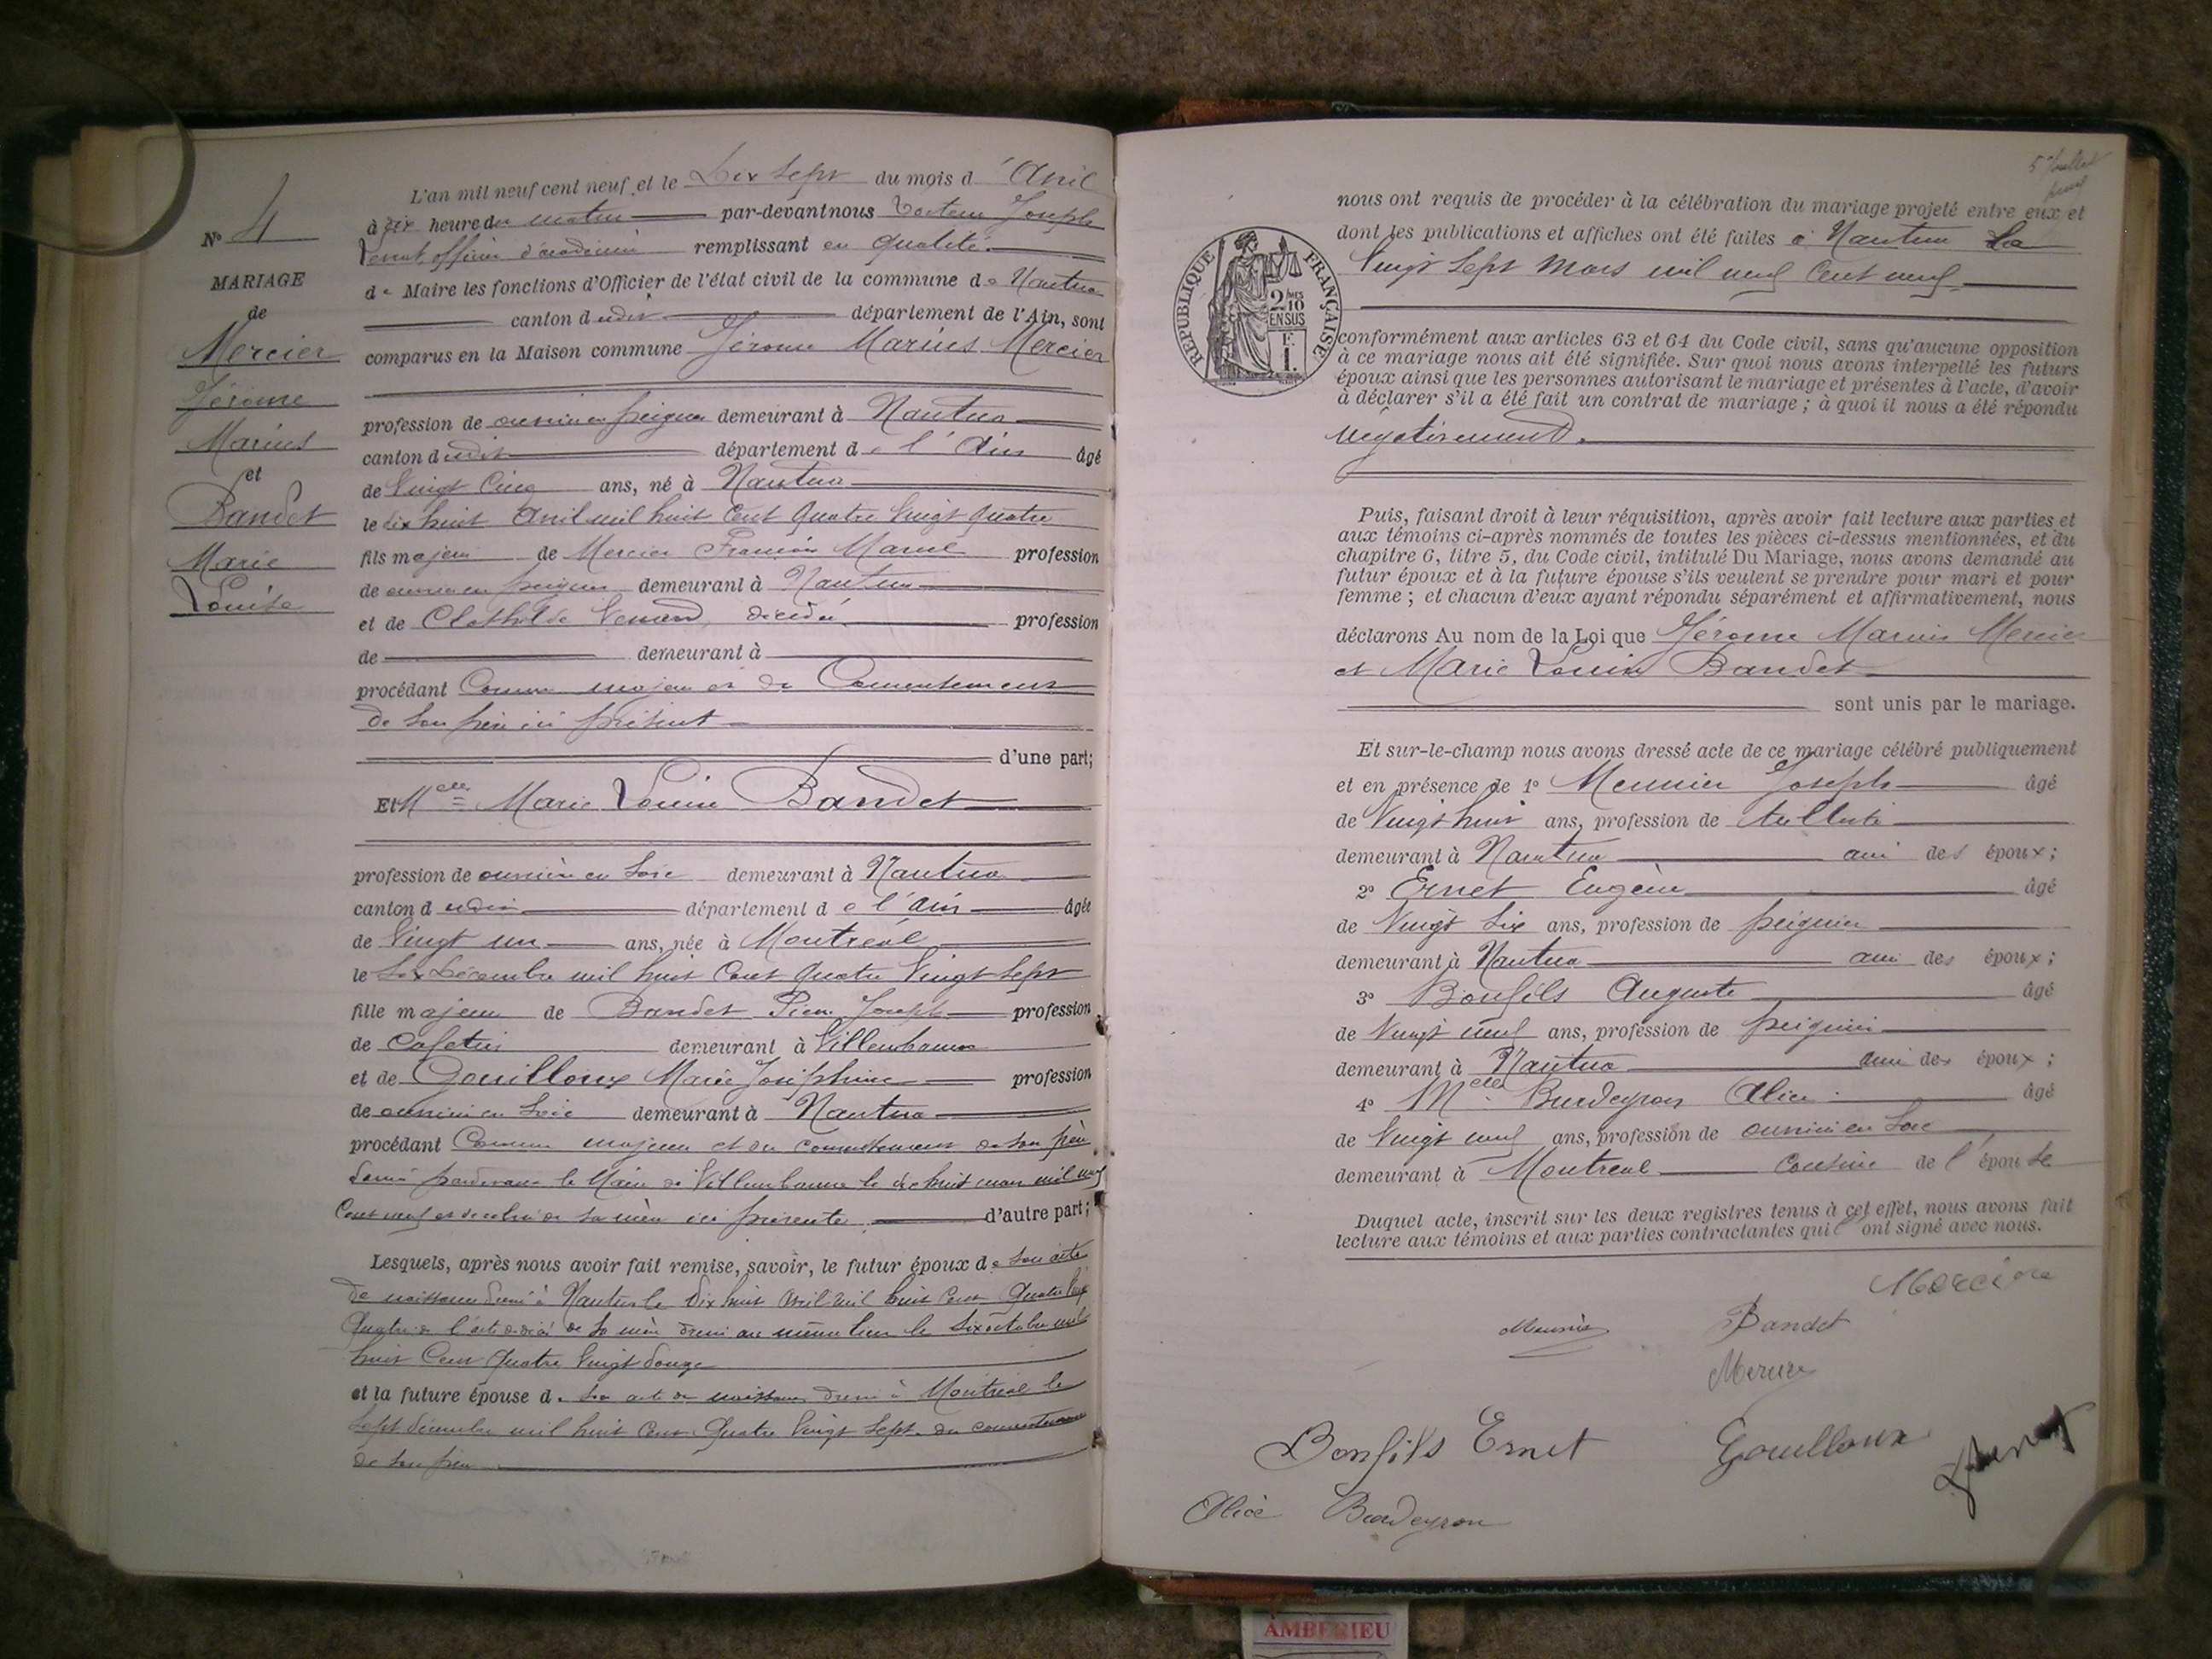 L'an mil neuf cent neuf et le Dix sept du mois d'Avril
à dix heure du matin par-devant nous Docteur Joseph
officier d'académie remplissant en qualité
de Maire les fonctions d'Officier de l'état civil de la commune de Nantua
canton dudit département de l'Ain, sont
comparus en la Maison commune Jérome Marius Mercier
N° 4
MARIAGE
de
Mercier
Jérome
Marius
et
Bandet
Marie
Louise
profession de ouvrier en peignes demeurant à Nantua
canton dudit département de l'Ain âgé
de Vingt Cinq ans, né à Nantua
le dix huit Avril mil huit Cent Quatre Vingt Quatre
fils majeur de Mercier François Marcel profession
de ouvrier en peignes demeurant à Nantua
et de Clothilde décédée profession
de demeurant à
procédant Comme majeur et du Consentement
de son père ici présent
d'une part;
Et Melle Marie Louise Bandet
profession de ouvrière en Soie demeurant à Nantua
canton dudit département de l'Ain âgée
de Vingt un ans, née à Montréal
le Six Décembre mil huit Cent Quatre Vingt Sept
fille majeure de Bandet Pierre Joseph profession
de Cafetier demeurant à Villeurbanne
et de Gouilloux Marie Joséphine profession
de ouvrière en Soie demeurant à Nantua
procédant Comme majeure et du consentement de son père
donné pardevant le Maire de Villeurbanne le dix huit mars mil neuf
Cent neuf et de celui de sa mère ici présente d'autre part;
Lesquels, après nous avoir fait remise, savoir, le futur époux de son acte
de naissance dressé à Nantua le Dix huit Avril mil huit Cent Quatre Vingt
Quatre de l'acte de décès de sa mère dressé au même lieu le Six octobre mil
huit Cent Quatre Vingt douze
et la future épouse de son acte de naissance dressé à Montréal le
Sept décembre mil huit Cent Quatre Vingt Sept du consentement
de son père
5e feuillet
REPUBLIQUE FRANÇAISE
2 10MES
EN SUS
F.
1.
nous ont requis de procéder à la célébration du mariage projeté entre eux et
dont les publications et affiches ont été faites à Nantua le
Vingt Sept Mars mil neuf Cent neuf
conformément aux articles 63 et 64 du Code civil, sans qu'aucune opposition
à ce mariage nous ait été signifiée. Sur quoi nous avons interpellé les futurs
époux ainsi que les personnes autorisant le mariage et présentes à l'acte, d'avoir
à déclarer s'il a été fait un contrat de mariage ; à quoi il nous a été répondu
négativement.
Puis, faisant droit à leur réquisition, après avoir fait lecture aux parties et
aux témoins ci-après nommés de toutes les pièces ci-dessus mentionnées, et du
chapitre 6, titre 5, du Code civil, intitulé Du Mariage, nous avons demandé au
futur époux et à la future épouse s'ils veulent se prendre pour mari et pour
femme ; et chacun d'eux ayant répondu séparément et affirmativement, nous
déclarons Au nom de la Loi que Jérome Marius Mercier
et Marie Louise Bandet
sont unis par le mariage.
Et sur-le-champ nous avons dressé acte de ce mariage célébré publiquement
et en présence de 1° Meunier Joseph âgé
de Vingt huit ans, profession de tulliste
demeurant à Nantua ami des époux ;
2° Ernet Eugène âgé
de Vingt Six ans, profession de peignier
demeurant à Nantua ami des époux ;
3° Bonfils Auguste âgé
de Vingt neuf ans, profession de peignier
demeurant à Nantua ami des époux ;
4° Melle Burdeyron Alice âgé
de Vingt neuf ans, profession de ouvrière en Soie
demeurant à Montréal Cousine de l'épouse
Duquel acte, inscrit sur les deux registres tenus à cet effet, nous avons fait
lecture aux témoins et aux parties contractantes qui ont signé avec nous.
Mercier
Meunier Bandet
Mercier
Bonfils Ernet Gouilloux
Alice Burdeyron
AMBERIEU